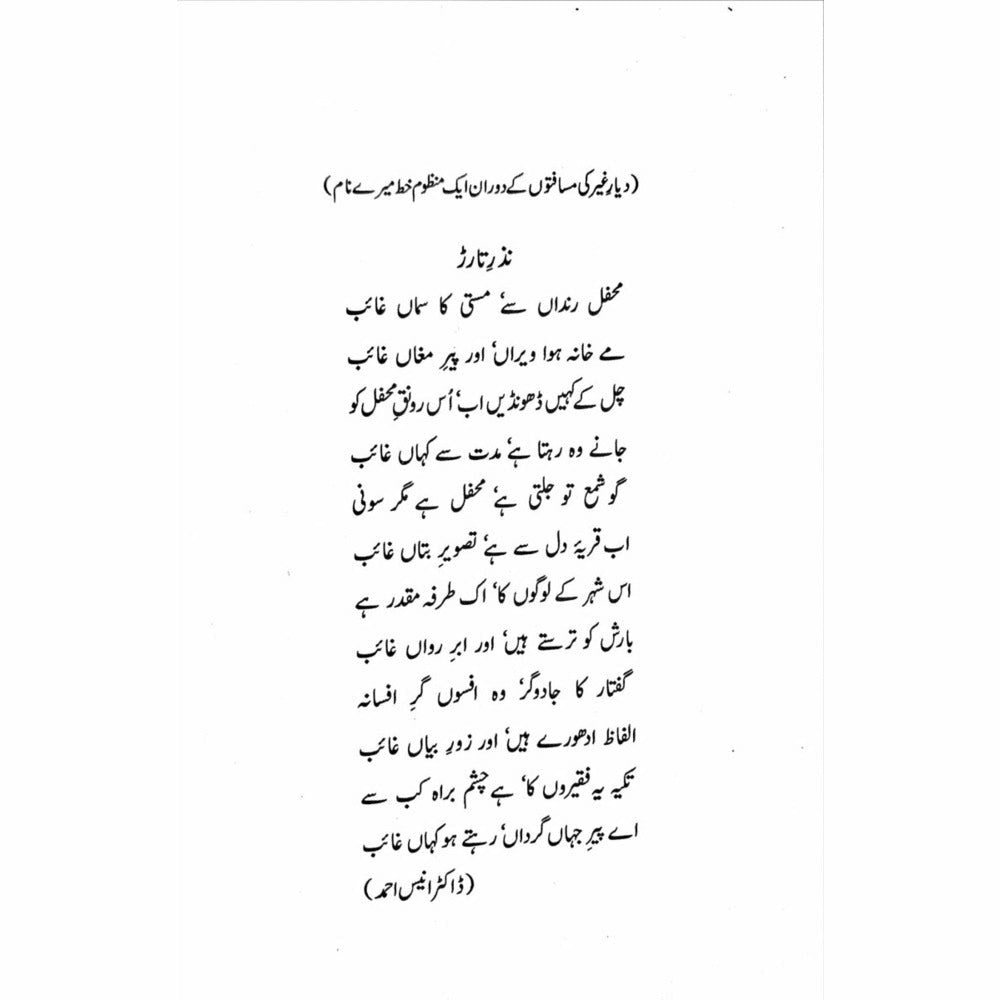 (دیارِ غیر کی مسافتوں کے دوران ایک منظوم خط میرے نام)
نذرِ تارڑ
محفل رنداں سے‘ مستی کا سماں غائب
مے خانہ ہوا ویراں‘ اور پیرِ مغاں غائب
چل کے کہیں ڈھونڈیں اب‘ اُس رونقِ محفل کو
جانے وہ رہتا ہے‘ مدت سے کہاں غائب
گو شمع تو جلتی ہے‘ محفل ہے مگر سونی
اب قریۂ دل سے ہے‘ تصویرِ بتاں غائب
اس شہر کے لوگوں کا‘ اک طرفہ مقدر ہے
بارش کو ترستے ہیں‘ اور ابرِ رواں غائب
گفتار کا جادوگر‘ وہ افسوں گرِ افسانہ
الفاظ ادھورے ہیں‘ اور زورِ بیاں غائب
تکیہ یہ فقیروں کا‘ ہے چشم براہ کب سے
اے پیرِ جہاں گرداں‘ رہتے ہو کہاں غائب
(ڈاکٹر انیس احمد)